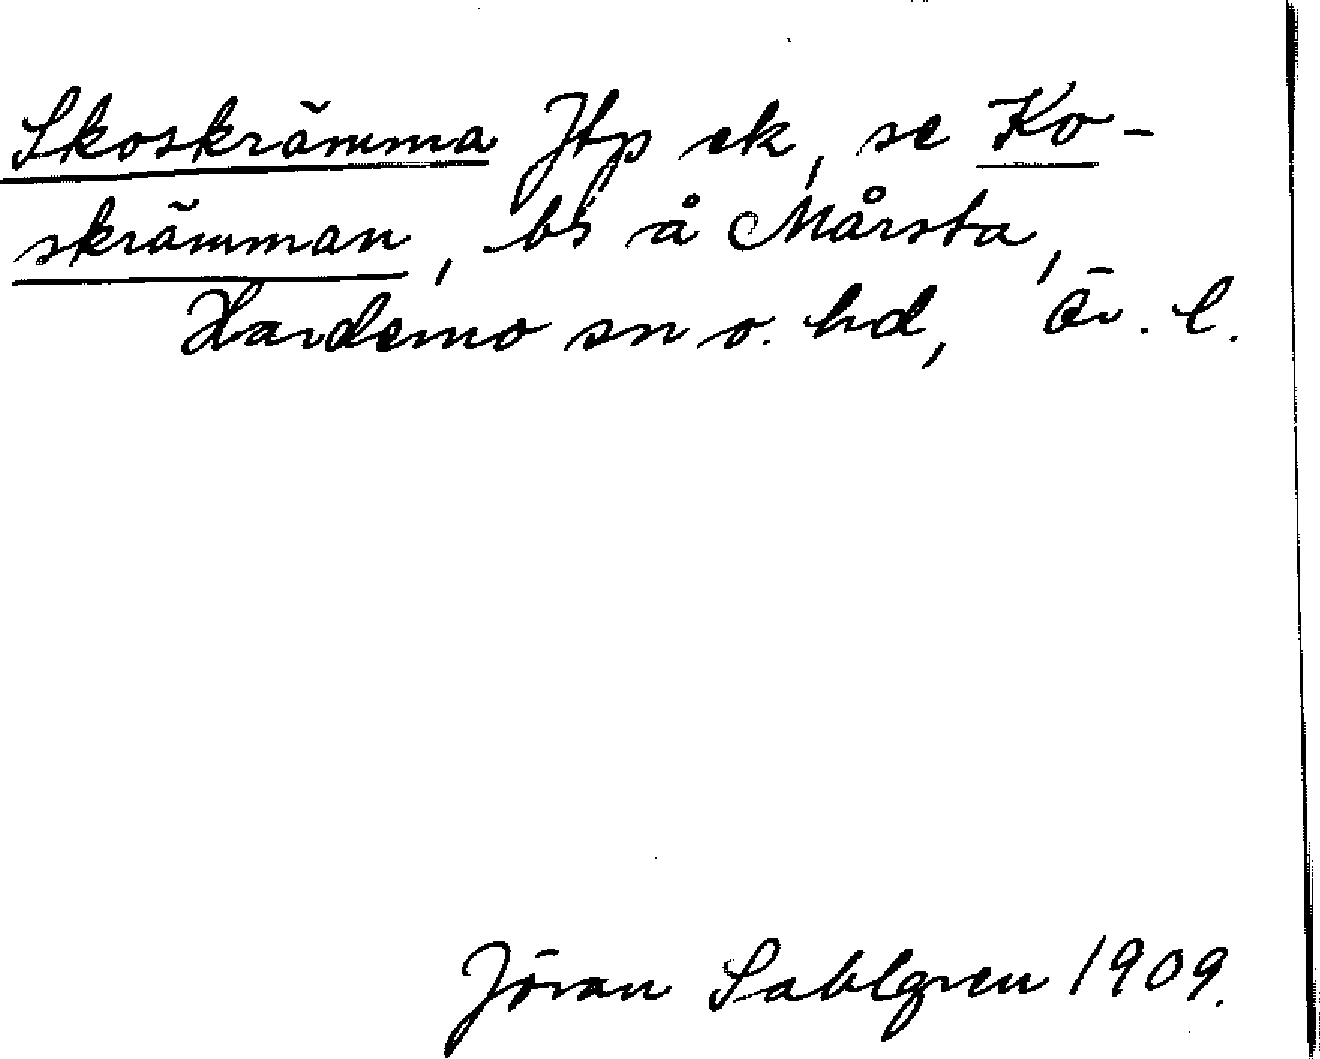 Skoskrämma Jtp ek, se Ko-
skrämman, bs å Mårsta,
Hardemo sn o. hd, Ör. l.
Jöran Sahlgren 1909.